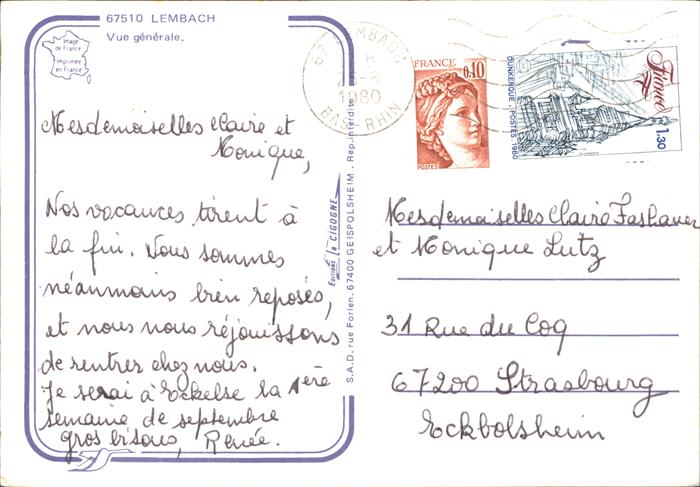 67510 LEMBACH
Vue générale.
Image
de France
Imprimée
en France
Mesdemoiselles Claire et
Monique,
Nos vacances tirent à
la fin. Nous sommes
néanmains bien reposés,
et nous nous réjouissons
de rentrer chez nous.
Je serai à Eckelse la 1ère
semaine de septembre
gros bisous, Renée.
Editions la CIGOGNE
S.A.D. rue Forlen. 67400 GEISPOLSHEIM. Rep. interdite
67 LEMBACH
1980
BAS RHIN
FRANCE
0,10
POSTES
DUNKERQUE - POSTES 1980
France
1,30
Mesdemoiselles Claire
et Monique Lutz
31 Rue du Coq
67200 Strasbourg
Eckbolsheim